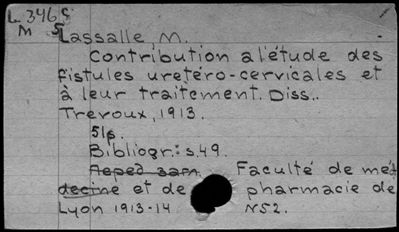 L 346
M 5
Lassalle M.
Contribution a l'étude des
fistules uretéro-cervicales et
à leur traitement. Diss..
Trevoux, 1913.
51p.
Bibliogr.: s.49.
Faculté de mé-
decine et de pharmacie de
Lyon 1913-14 N52.